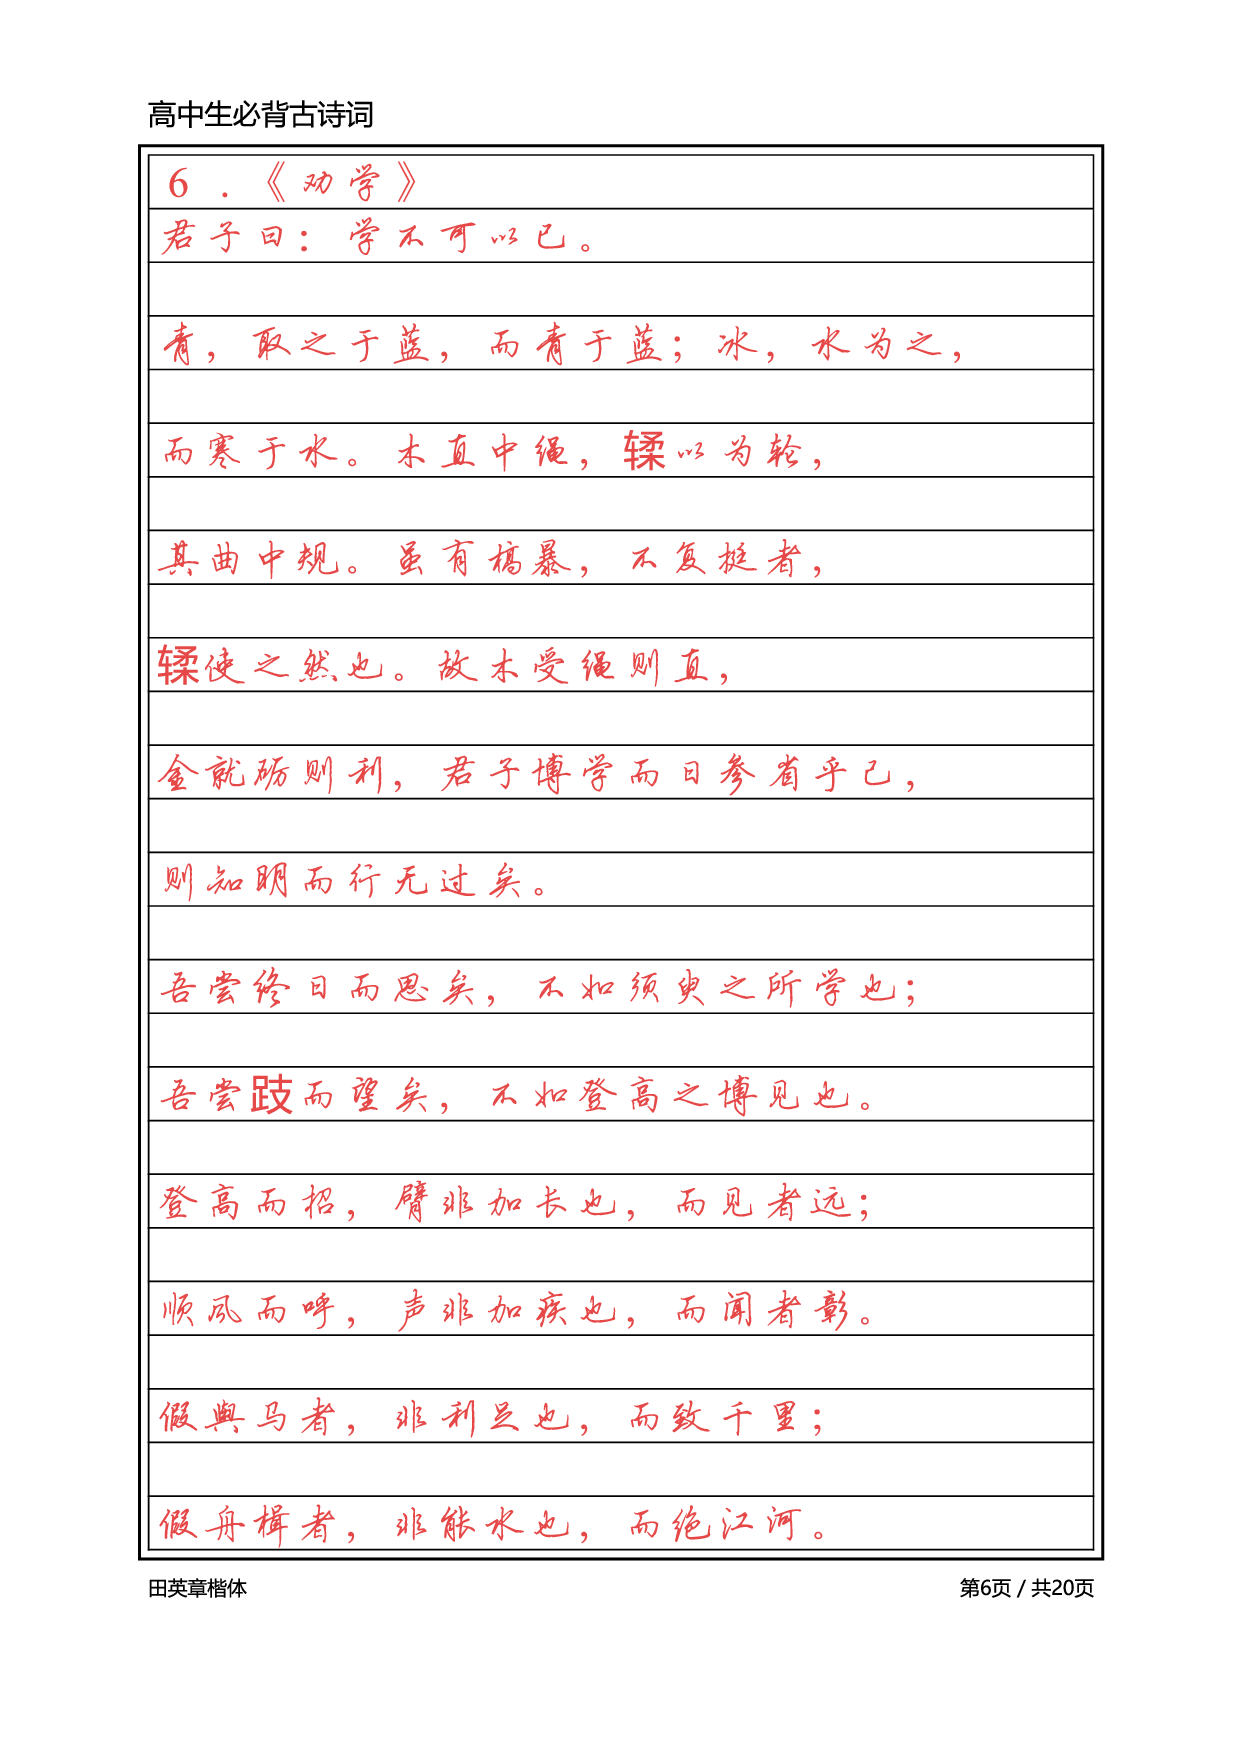 高中生必背古诗词
6.《劝学》
君子曰：学不可以已。
青，取之于蓝，而青于蓝；冰，水为之，
而寒于水。木直中绳，輮以为轮，
其曲中规。虽有槁暴，不复挺者，
輮使之然也。故木受绳则直，
金就砺则利，君子博学而日参省乎己，
则知明而行无过矣。
吾尝终日而思矣，不如须臾之所学也；
吾尝跂而望矣，不如登高之博见也。
登高而招，臂非加长也，而见者远；
顺风而呼，声非加疾也，而闻者彰。
假舆马者，非利足也，而致千里；
假舟楫者，非能水也，而绝江河。
田英章楷体
第6页 / 共20页